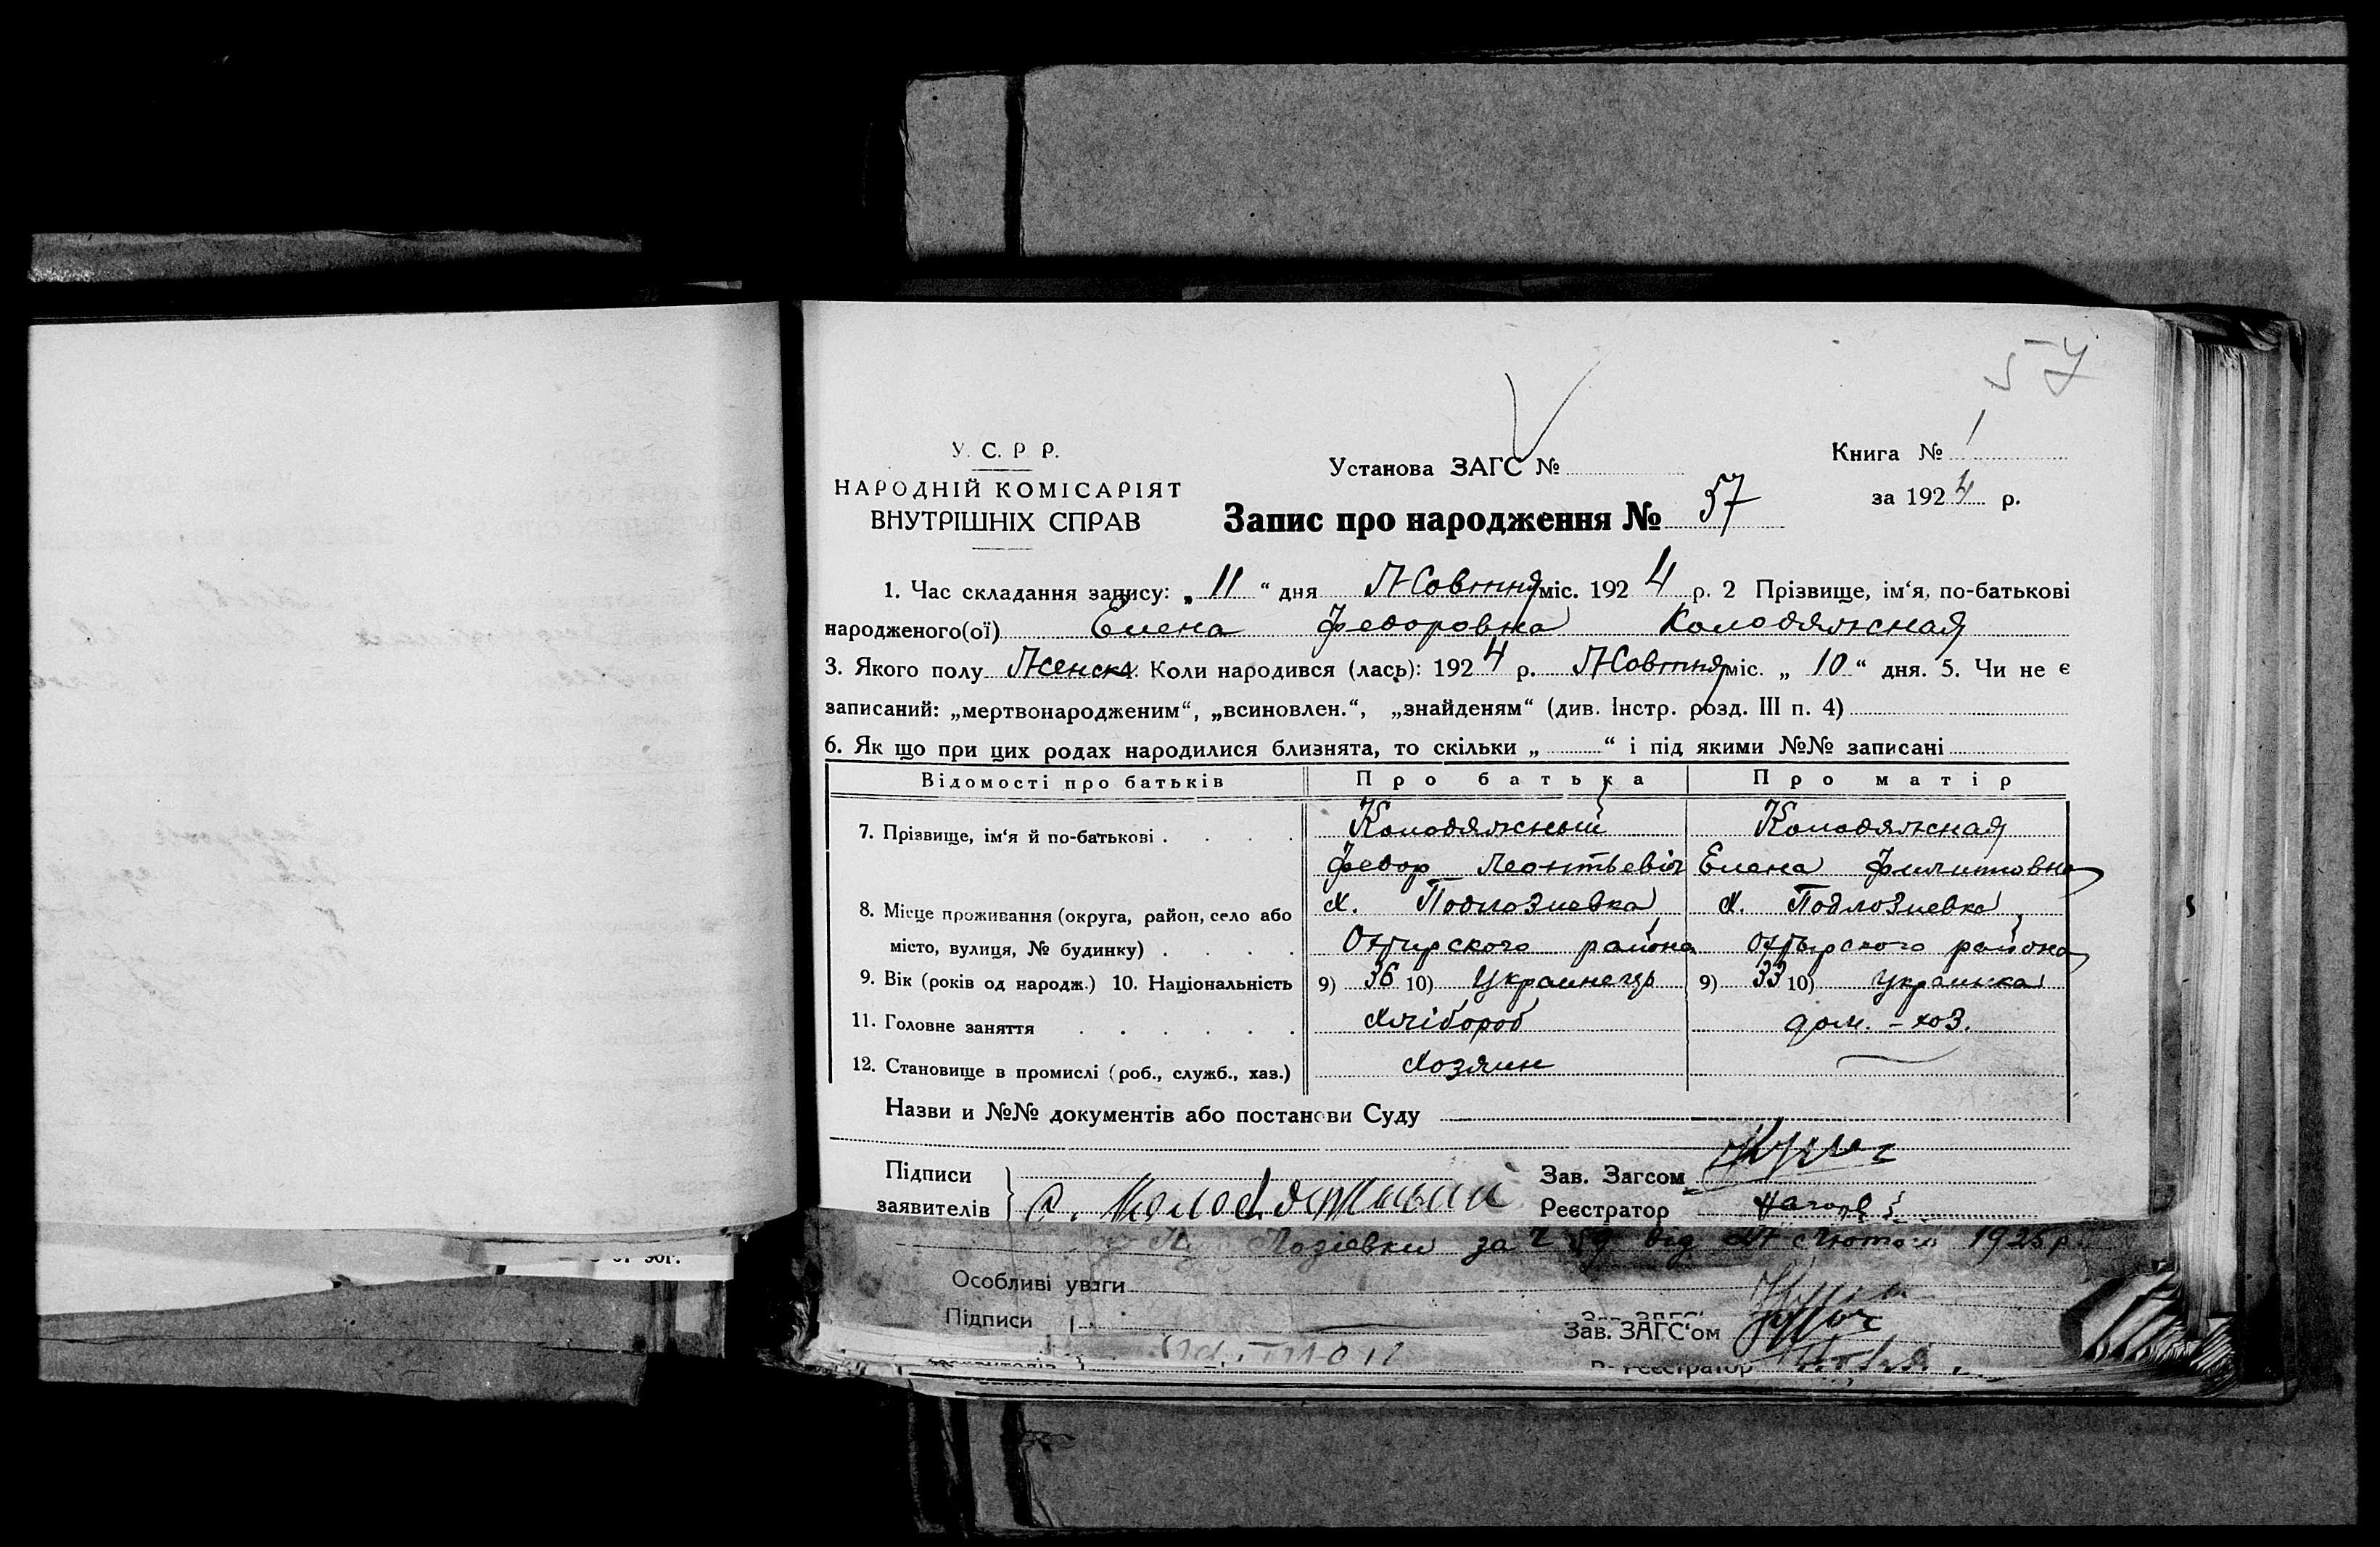 57
У. С. Р Р.
НАРОДНІЙ КОМІСАРІЯТ
ВНУТРІШНІХ СПРАВ
Установа ЗАГС №
Книга № 1
за 1924 р.
Запис про народження № 57
1. Час складання запису: „ 11 “ дня Жовтня міс. 1924 р. 2 Прізвище, ім‘я, по-батькові
народженого(ої) Елена Федоровна Колодяжная
3. Якого полу Женск. Коли народився (лась): 1924 р. Жовтня міс. „ 10 “ дня. 5. Чи не є
записаний: „мертвонародженим“, „всиновлен.“, „знайденям“ (див. Інстр. розд. III п. 4)
6. Як що при цих родах народилися близнята, то скільки „ “ і під якими №№ записані
Відомості про батьків Про батька Про матір
7. Прізвище, ім‘я й по-батькові . . . . Колодяжный Колодяжная
Федор Леонтьевіч Елена Филипповна
8. Місце проживання (округа, район, село або х. Подлозиевка, х. Подлозиевка,
місто, вулиця, № будинку) . . . . Охтирского района Охтырского района
9. Вік (років од народж.) 10. Національність 9) 36 10) Украинець 9) 33 10) Украинка
11. Головне заняття . . . . . . Хлібороб дом. - хоз.
12. Становище в промислі (роб., служб., хаз.) Хозяин
Назви и №№ документів або постанови Суду
Підписи
заявителів
Зав. Загсом
Реєстратор
Лозіевки за 1925 р.
Особливі уваги
Підписи
Зав. ЗАГС‘ом
Реєстратор